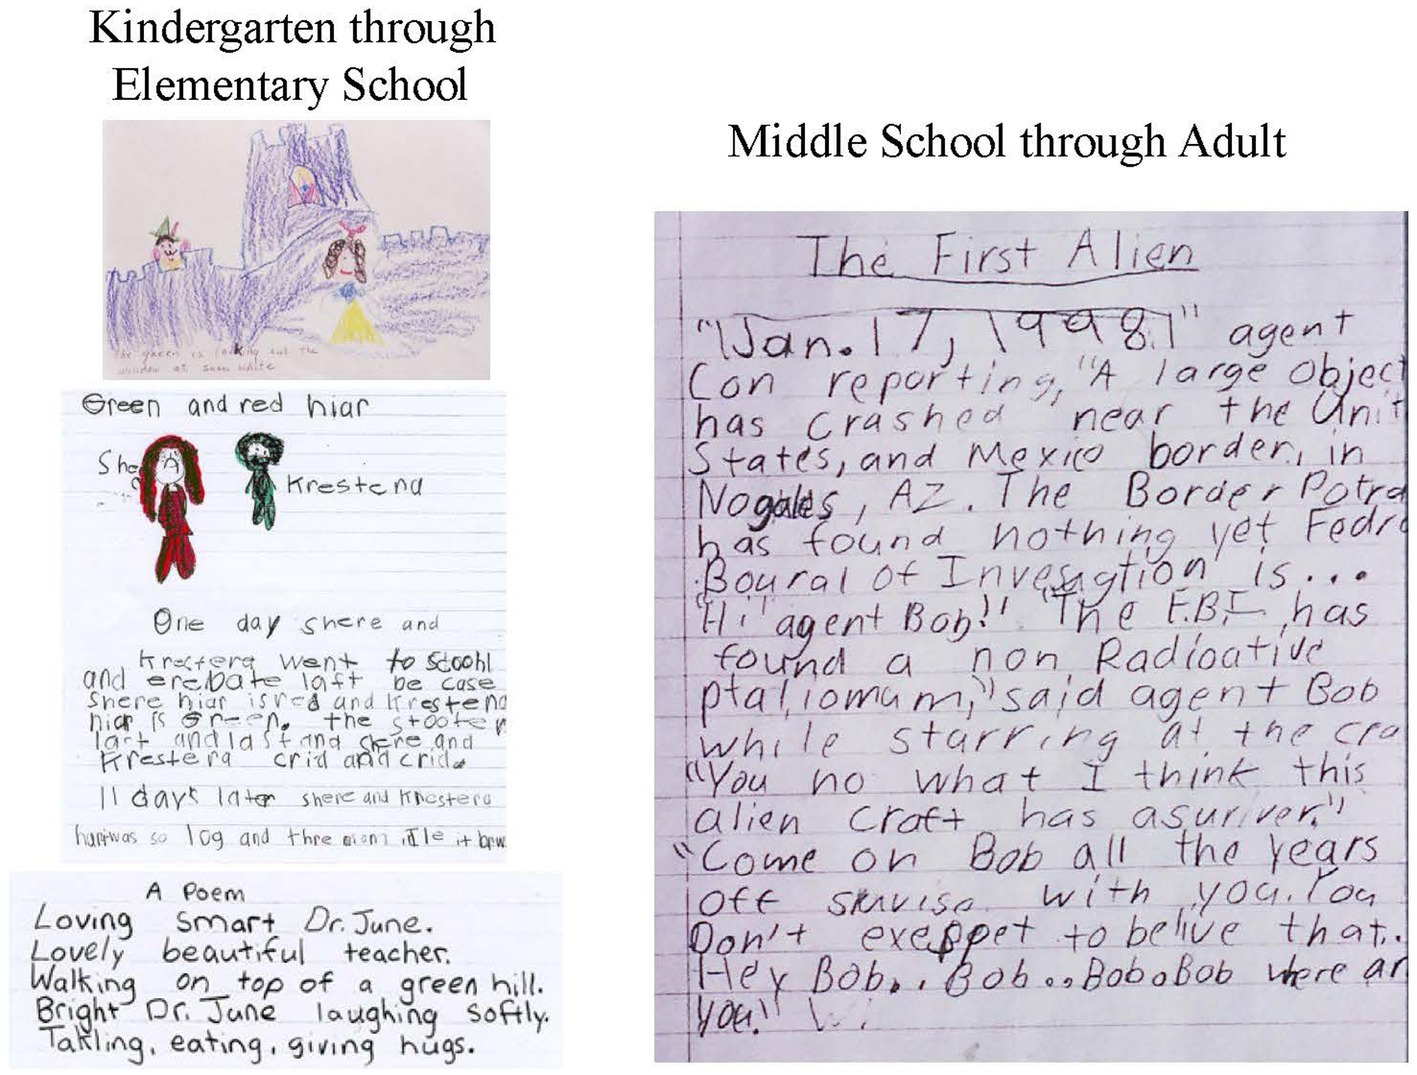 Kindergarten through
Elementary School
Middle School through Adult
queen is looking out the
window at snow white
Green and red hiar
She
Krestena
One day shere and
Krestera went to scoohl
and erebate laft be case
shere hiar is red and Krestena
hiar is Green. the stooter
laft and last and shere and
Krestera crid and crid.
11 days later shere and Krestera
was so log and thre mom it
A Poem
Loving smart Dr. June.
Lovely beautiful teacher.
Walking on top of a green hill.
Bright Dr. June laughing softly.
Takling, eating, giving hugs.
The First Alien
"Jan. 17, 1998" agent
Con reporting, "A large Object
has crashed near the Unit
States, and Mexico border, in
Nogales, AZ. The Border Potra
has found nothing yet Fedra
Boural of Invesagtion is...
"Hi" agent Bob!" "The F.B.I has
found a non Radioative
ptaliomum," said agent Bob
while starring at the cra
"You no what I think this
alien craft has asuriver."
"Come on Bob all the years
off survise with you. You
Don't exeppet to belive that..
Hey Bob.. Bob..Bob.Bob where ar
you!"